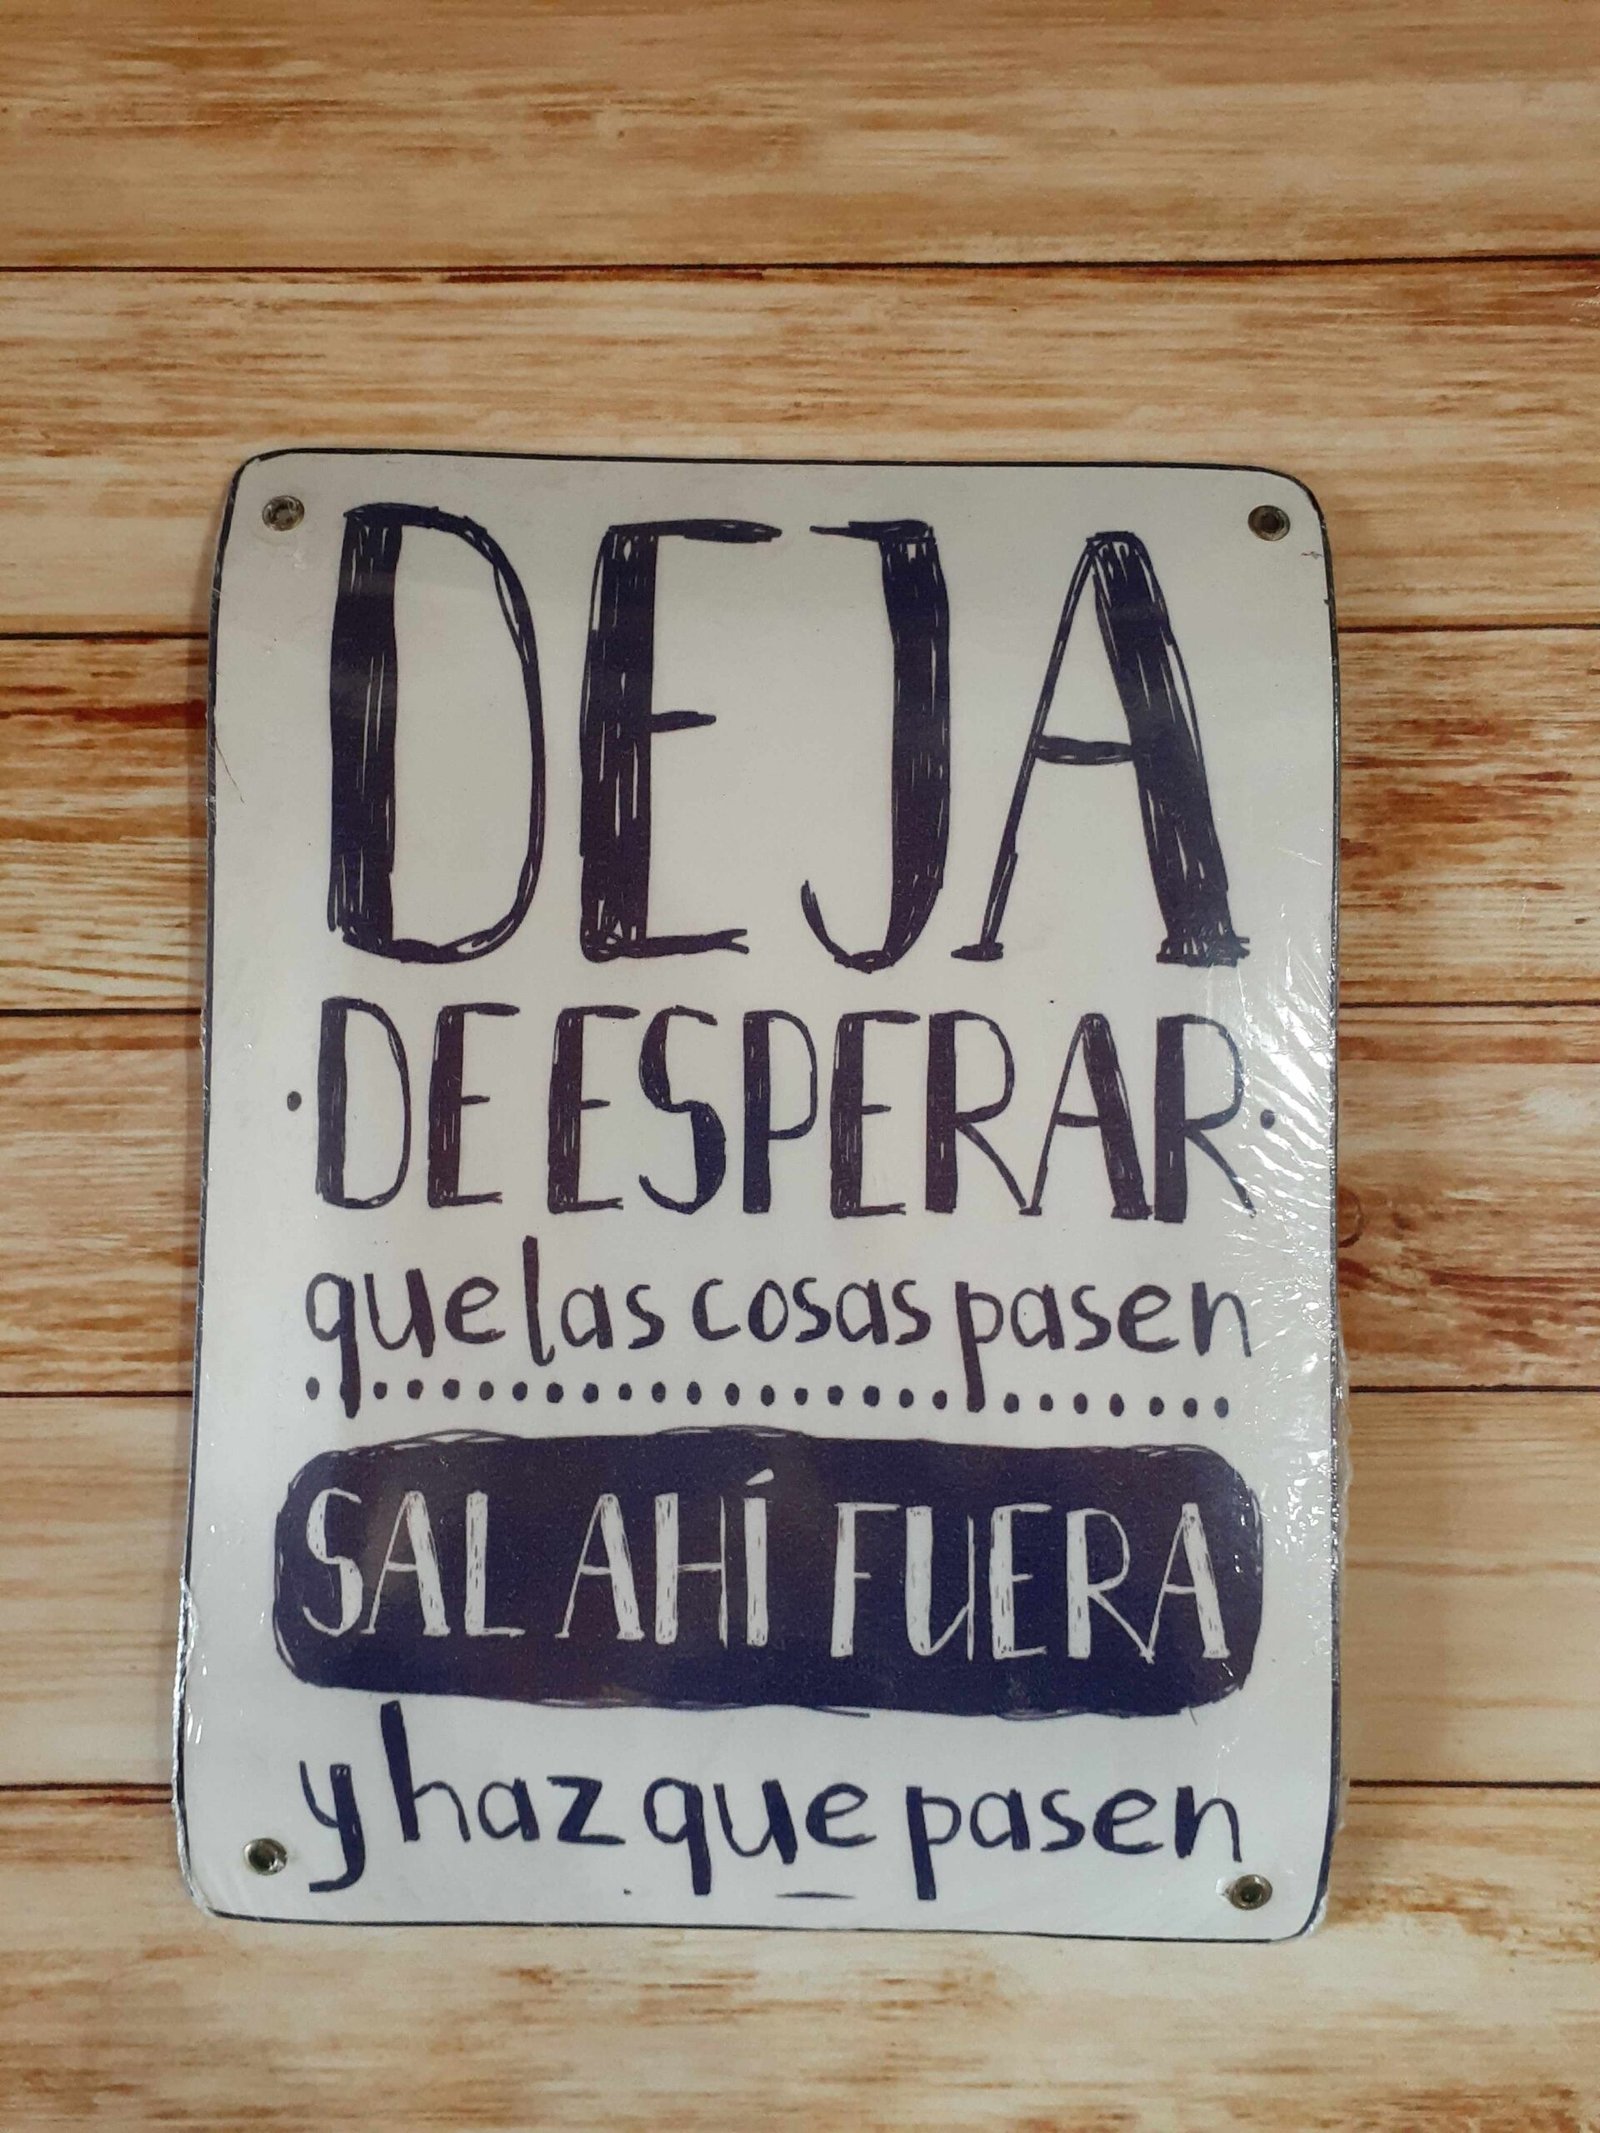 DEJA
·DE ESPERAR·
que las cosas pasen
SAL AHÍ FUERA
y haz que pasen